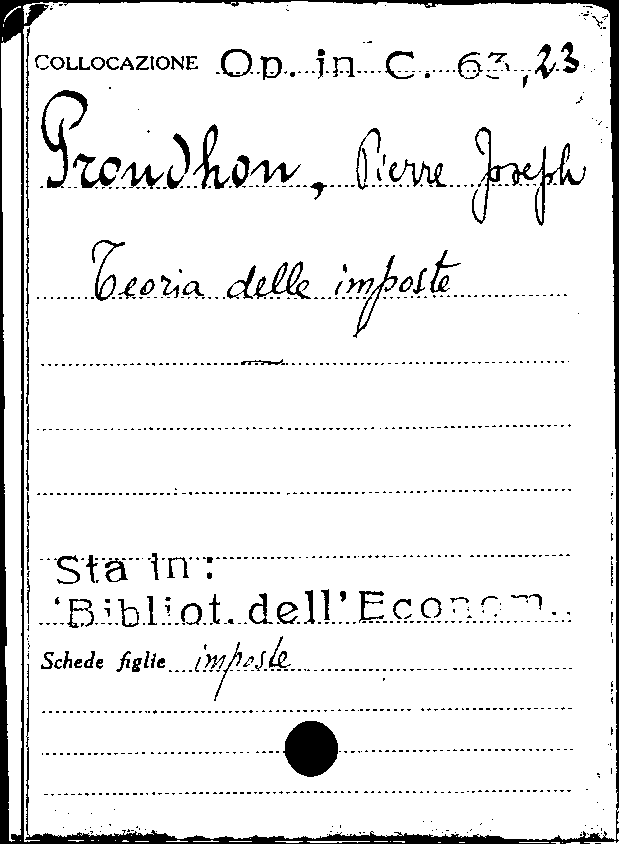 COLLOCAZIONE Op. in C. 63,23
Proudhon, Pierre Joseph
Teoria delle imposte
Sta in:
'Bibliot. dell' Econom..
Schede figlie imposte